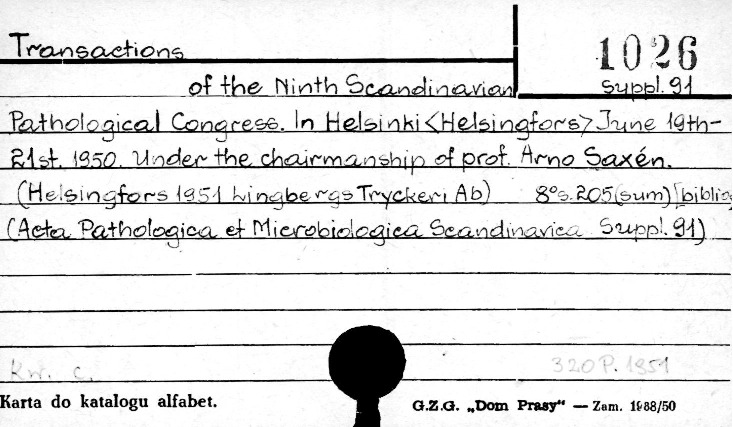 Transactions
1026
Suppl. 91
of the Ninth Scandinavian
Pathological Congress. In Helsinki <Helsingfors> June 19th-
21st. 1950. Under the chairmanship of prof. Arno Saxén.
(Helsingfors 1951 Lingbergs Tryckeri Ab) 8° s. 205 (sum) [biblio
(Acta Pathologica et Microbiologica Scandinavica Suppl. 91)
Kw. c. 320 P. 1951
Karta do katalogu alfabet. G.Z.G. „Dom Prasy" — Zam. 1988/50